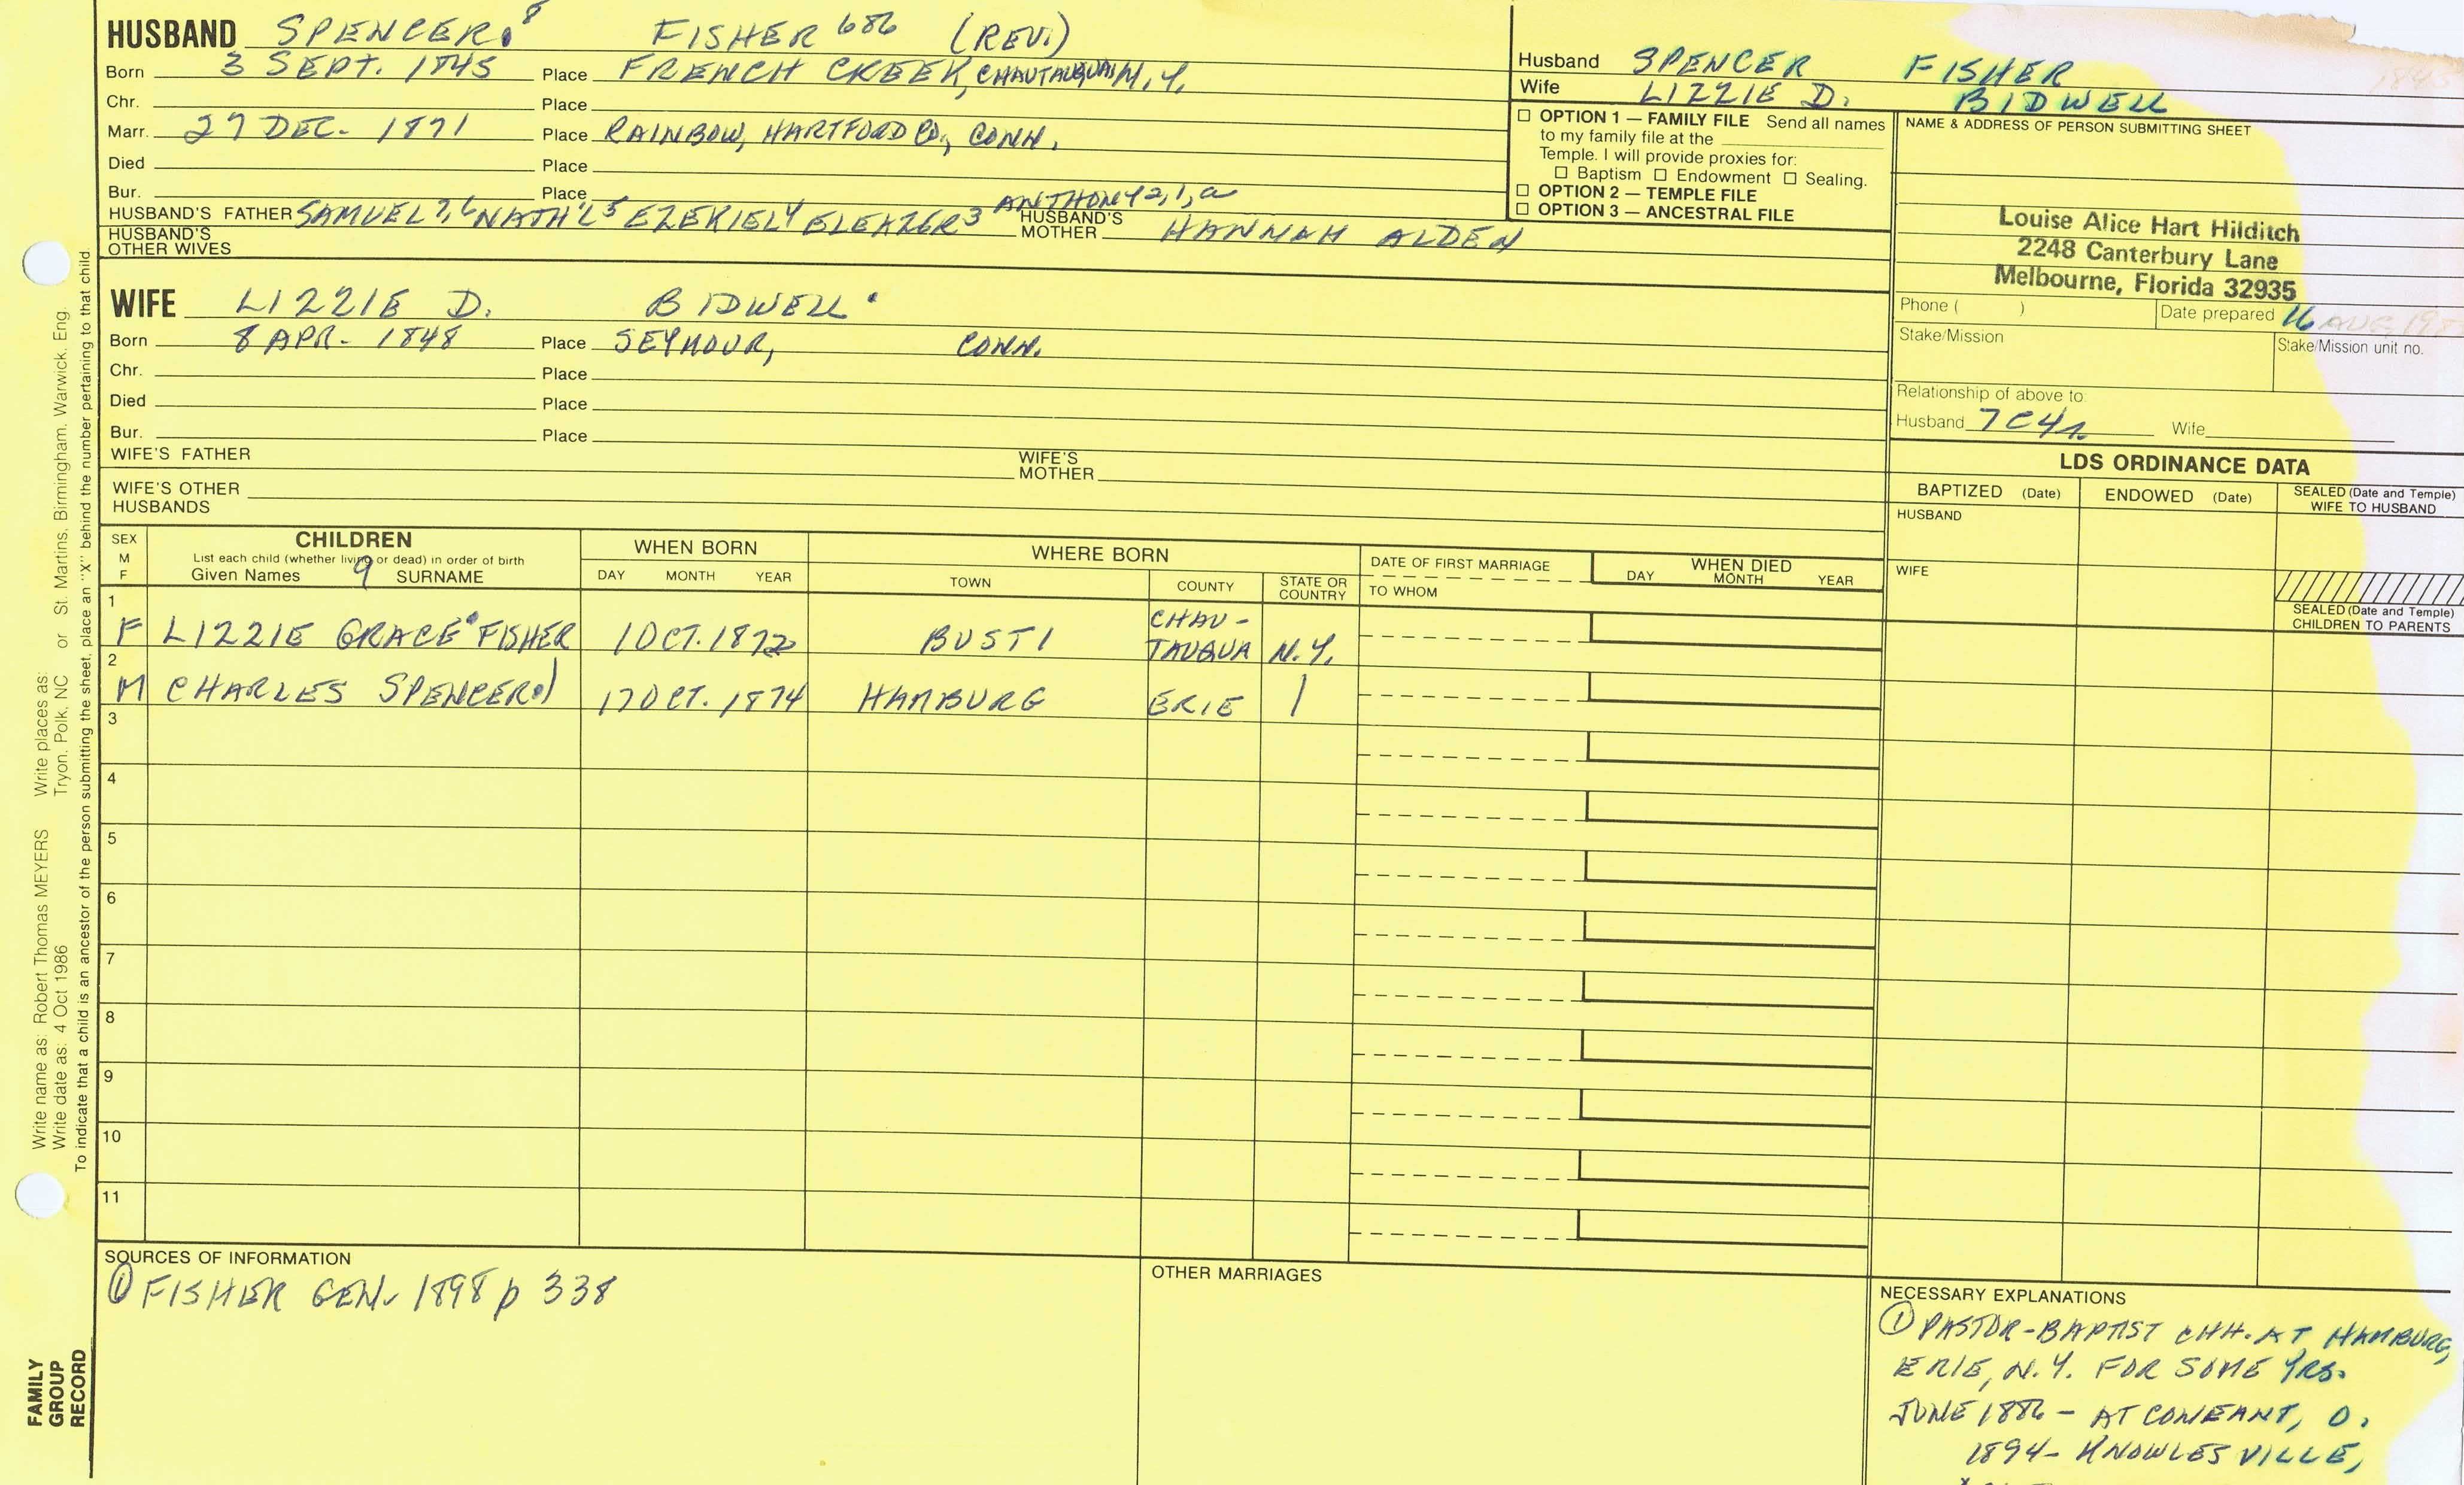 HUSBAND SPENCER 8 FISHER 686 (REV.)
Born 3 SEPT. 1845 Place FRENCH CREEK, CHAUTAUQUA, N.Y.
Chr. Place
Marr. 27 DEC. 1871 Place RAINBOW, HARTFORD CO., CONN.
Died Place
Bur. Place
HUSBAND'S FATHER SAMUEL 7,6 NATH'L 5 EZEKIEL 4 ELEAZER 3 ANTHONY 2,1,a HUSBAND'S MOTHER HANNAH ALDEN
HUSBAND'S OTHER WIVES
WIFE LIZZIE D. BIDWELL
Born 8 APR. 1848 Place SEYMOUR, CONN.
Chr. Place
Died Place
Bur. Place
WIFE'S FATHER WIFE'S MOTHER
WIFE'S OTHER HUSBANDS
Husband SPENCER FISHER
Wife LIZZIE D. BIDWELL
☐ OPTION 1 — FAMILY FILE Send all names
to my family file at the
Temple. I will provide proxies for:
☐ Baptism ☐ Endowment ☐ Sealing.
☐ OPTION 2 — TEMPLE FILE
☐ OPTION 3 — ANCESTRAL FILE
NAME & ADDRESS OF PERSON SUBMITTING SHEET
Louise Alice Hart Hilditch
2248 Canterbury Lane
Melbourne, Florida 32935
Phone ( ) Date prepared 16 AUG 198
Stake/Mission Stake/Mission unit no.
Relationship of above to:
Husband 7C4r Wife
LDS ORDINANCE DATA
BAPTIZED (Date) ENDOWED (Date) SEALED (Date and Temple) WIFE TO HUSBAND
HUSBAND
WIFE
SEALED (Date and Temple) CHILDREN TO PARENTS
SEX M F
CHILDREN
List each child (whether living or dead) in order of birth
Given Names 9 SURNAME
WHEN BORN
DAY MONTH YEAR
WHERE BORN
TOWN COUNTY STATE OR COUNTRY
DATE OF FIRST MARRIAGE
TO WHOM
WHEN DIED
DAY MONTH YEAR
1 F LIZZIE GRACE FISHER 1 OCT. 1872 BUSTI CHAU-TAUQUA N.Y.
2 M CHARLES SPENCER 17 OCT. 1874 HAMBURG ERIE
3
4
5
6
7
8
9
10
11
SOURCES OF INFORMATION
① FISHER GEN. 1898 p 338
OTHER MARRIAGES
NECESSARY EXPLANATIONS
① PASTOR-BAPTIST CHH. AT HAMBURG,
ERIE, N.Y. FOR SOME YRS.
JUNE 1886 - AT CONEANT, O.
1894 - KNOWLESVILLE,
Write name as: Robert Thomas MEYERS Write places as: Tryon, Polk, NC or St. Martins, Birmingham, Warwick, Eng.
Write date as: 4 Oct 1986
To indicate that a child is an ancestor of the person submitting the sheet, place an "X" behind the number pertaining to that child.
FAMILY
GROUP
RECORD